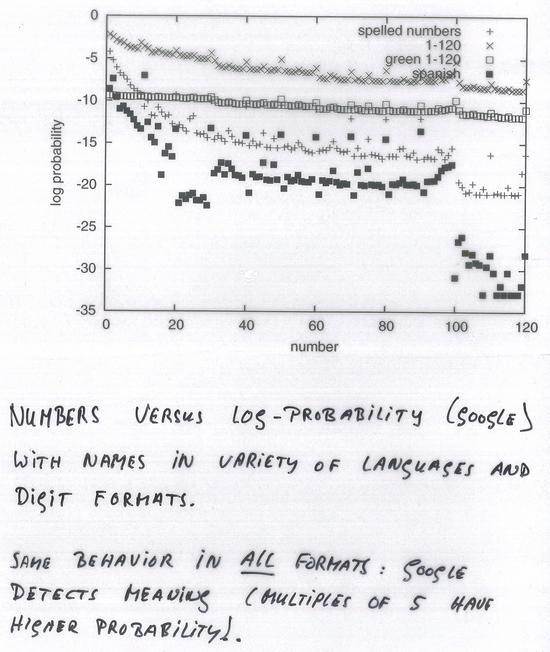 0
-5
-10
-15
-20
-25
-30
-35
log probability
spelled numbers
1-120
green 1-120
spanish
0 20 40 60 80 100 120
number
NUMBERS VERSUS LOG-PROBABILITY (GOOGLE)
WITH NAMES IN VARIETY OF LANGUAGES AND
DIGIT FORMATS.
SAME BEHAVIOR IN ALL FORMATS : GOOGLE
DETECTS MEANING (MULTIPLES OF 5 HAVE
HIGHER PROBABILITY).